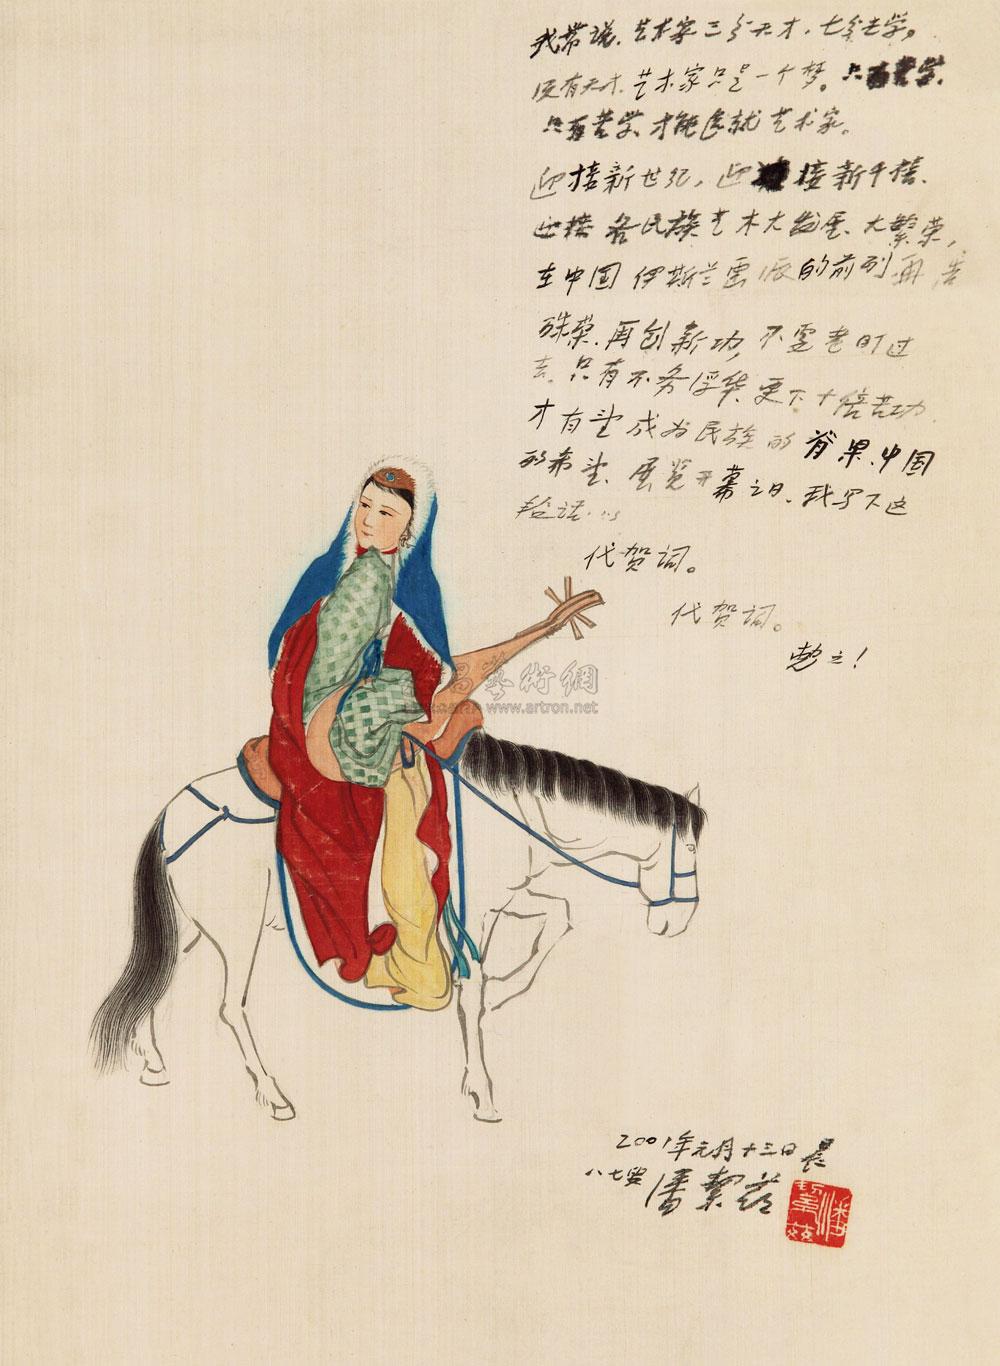 我常说、艺术家三分天才、七分苦学。
没有天才、艺术家只是一个梦。只有苦学、
只有苦学、才能造就艺术家。
迎接新世纪，迎接新千禧、
迎接各民族艺术大发展、大繁荣，
在中国伊斯兰画派的前列再告
殊荣、再创新功，不要老盯过
去。只有不务浮华、更下十倍苦功
才有望成为民族的脊梁、中国
的希望、展览开幕之日、我写下这
段话
代贺词。
代贺词。
勉之！
艺術網
www.artron.net
2001年元月十三日晨
八七叟潘絜兹
潘絜兹